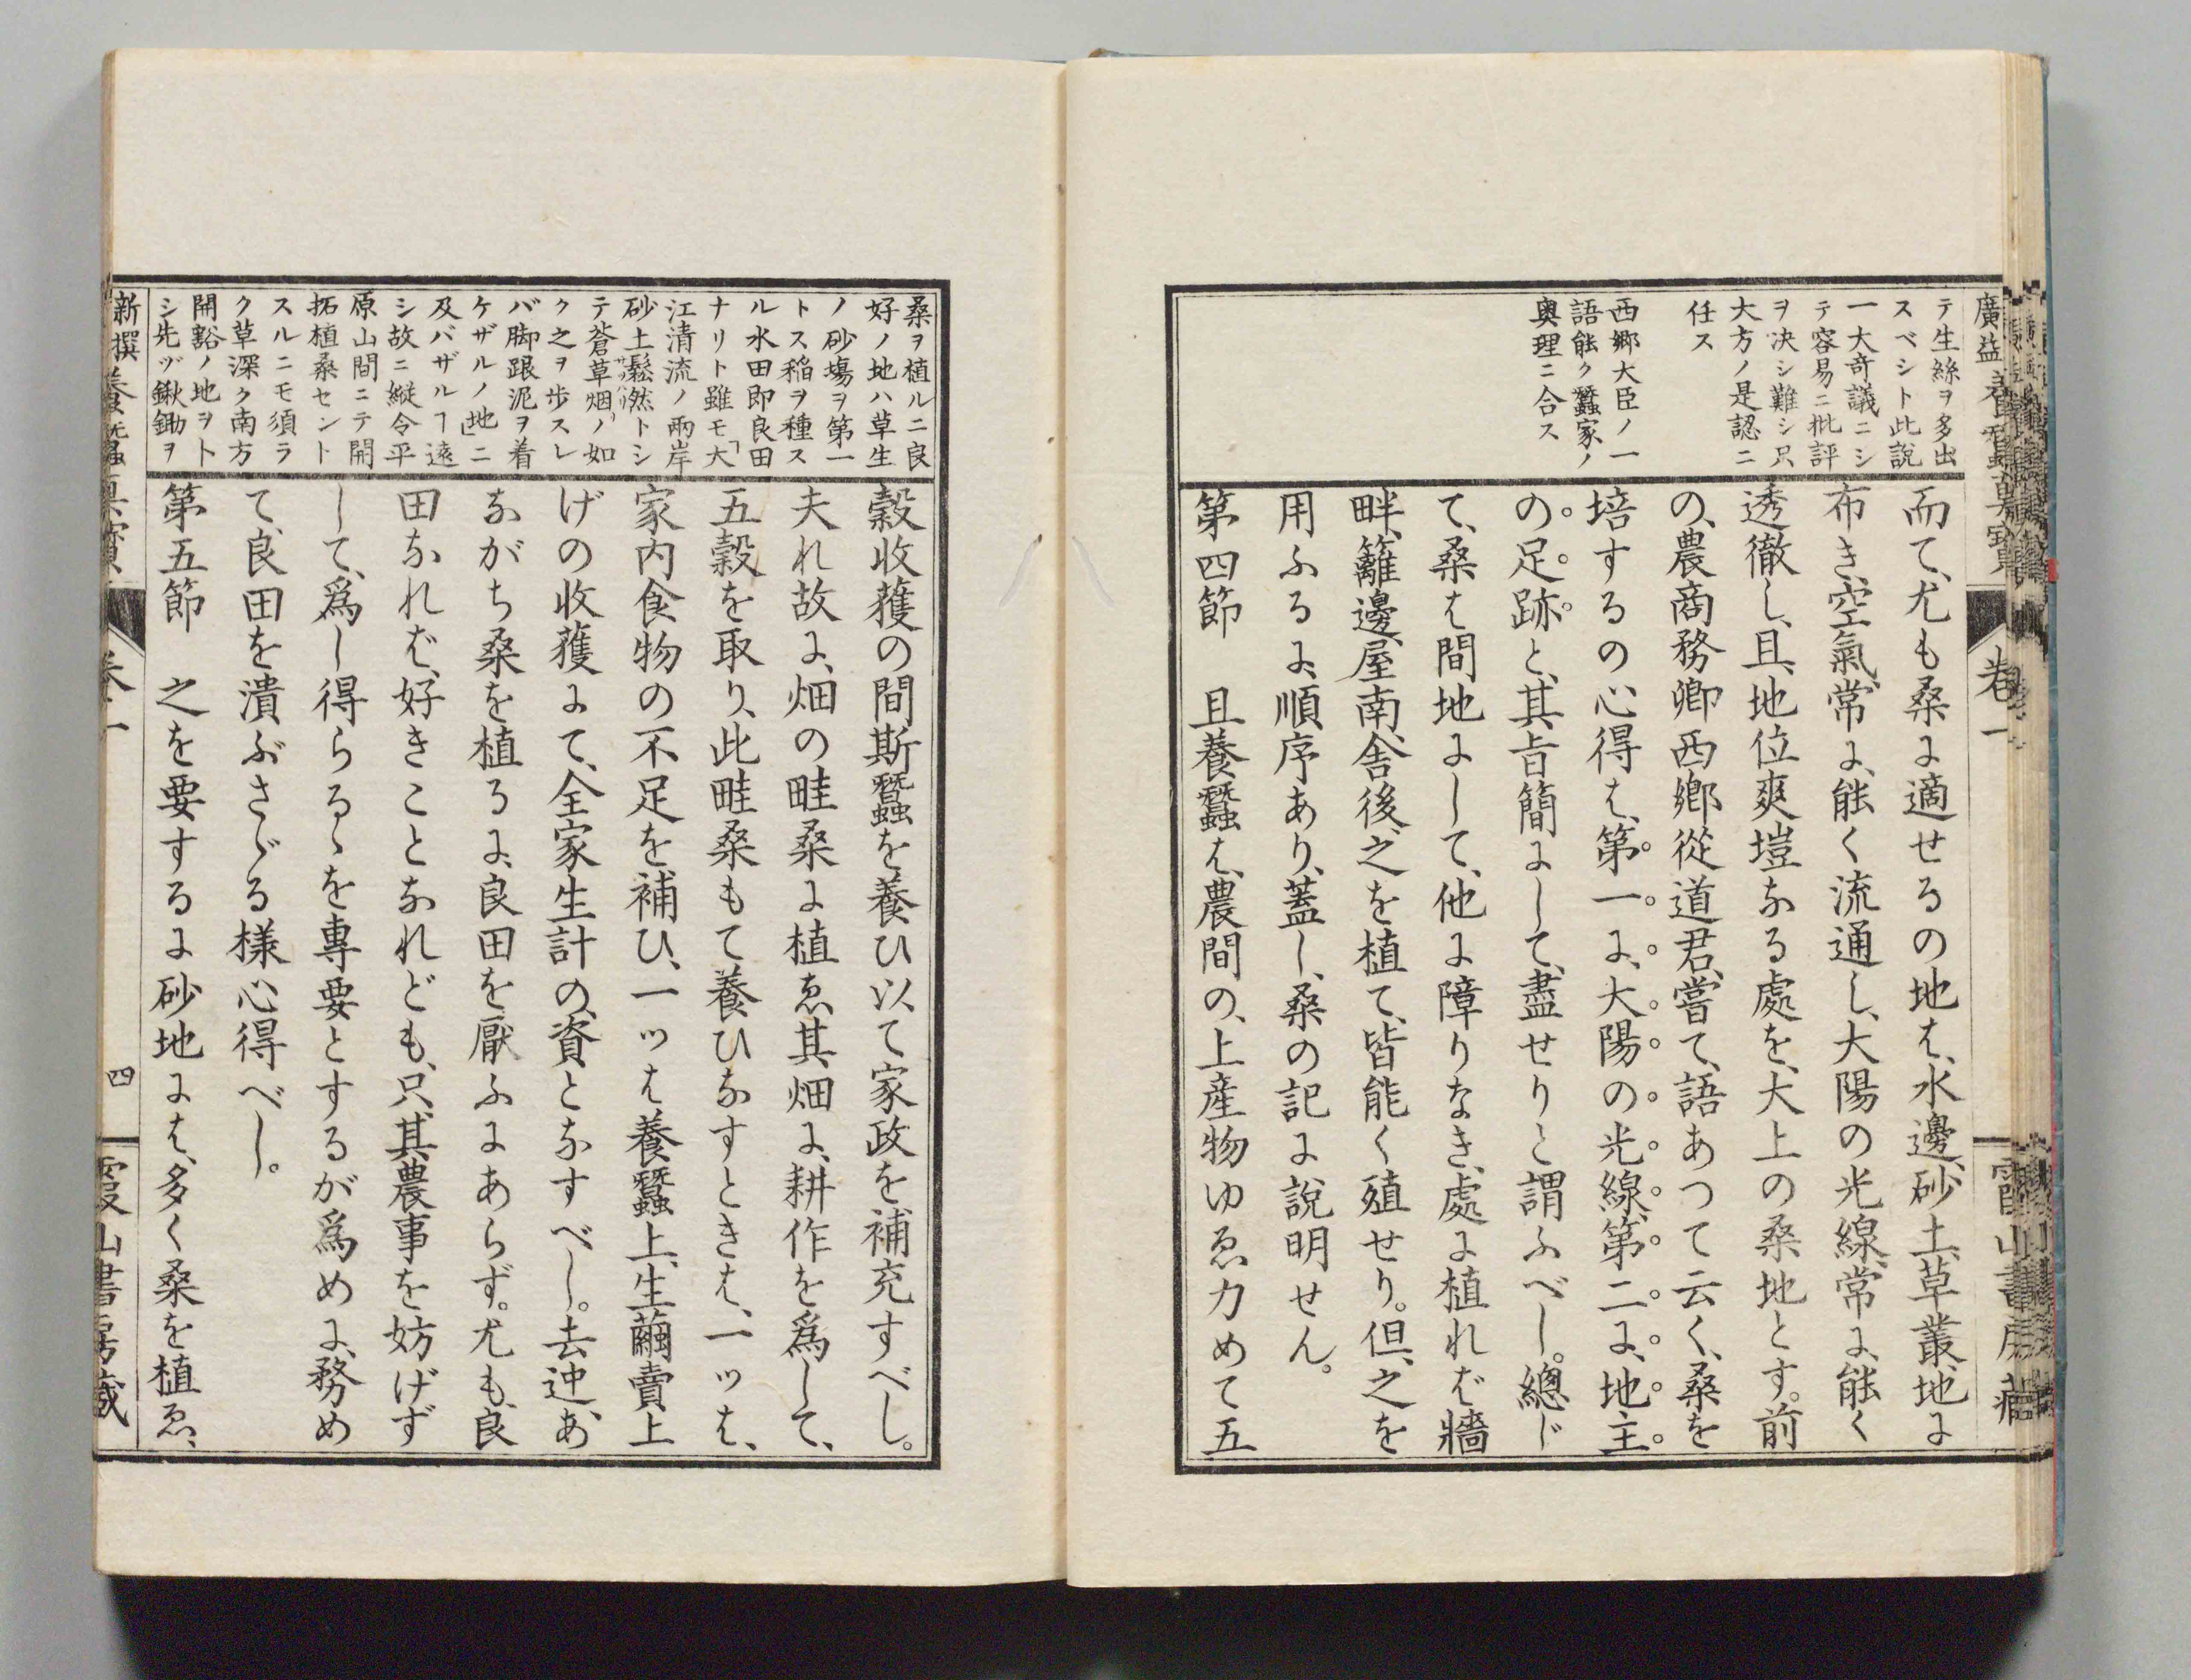 廣益養蠶眞寶
卷一
霞山書房藏
テ生絲ヲ多出
スベシト此說
一大奇議ニシ
テ容易ニ批評
ヲ决シ難シ只
大方ノ是認ニ
任ス
西鄕大臣ノ一
語能ク蠶家ノ
奧理ニ合ス
而て、尤も桑に適せるの地は、水邊、砂土、草叢、地に
布き、空氣、常に、能く流通し、大陽の光線、常に、能く
透徹し、且、地位爽塏なる處を、大上の桑地とす。前
の、農商務卿西鄕從道君、嘗て、語あつて云く、桑を
培するの心得は、第一に、大陽の光線、第二に、地主
の足跡と、其旨簡にして、盡せりと謂ふべし。總じ
て、桑は間地にして、他に障りなき、處に植れば、牆
畔、籬邊、屋南、舍後、之を植て、皆能く殖せり。但、之を
用ふるに、順序あり、蓋し、桑の記に說明せん。
第四節　且養蠶は、農間の、上產物ゆゑ力めて五
桑ヲ植ルニ良
好ノ地ハ草生
ノ砂塲ヲ第一
トス稲ヲ種ス
ル水田即良田
ナリト雖モ「大
江清流ノ兩岸
砂土鬆然トシ
テ蒼草烟ノ如
ク之ヲ歩スレ
バ脚跟泥ヲ着
ケザルノ地」ニ
及バザルヿ遠
シ故ニ縱令平
原山間ニテ開
拓植桑セント
スルニモ須ラ
ク草深ク南方
開豁ノ地ヲト
シ先ヅ鍬鋤ヲ
穀收蓷の間、斯蠶を養ひ以て家政を補充すべし。
夫れ故に、畑の畦桑に植ゑ其畑に、耕作を爲して、
五穀を取り、此畦桑もて養ひなすときは、一ッは、
家內食物の不足を補ひ、一ッは養蠶上、生繭賣上
げの收蓷にて、全家生計の、資となすべし。去迚、あ
ながち桑を植るに、良田を厭ふにあらず。尤も、良
田なれば、好きことなれども、只、其農事を妨げず
して、爲し得らるゝを專要とするが爲めに、務め
て、良田を潰ぶさゞる樣心得べし。
第五節　之を要するに砂地には、多く桑を植ゑ、
新撰養蠶眞寶
卷一
四
霞山書房藏